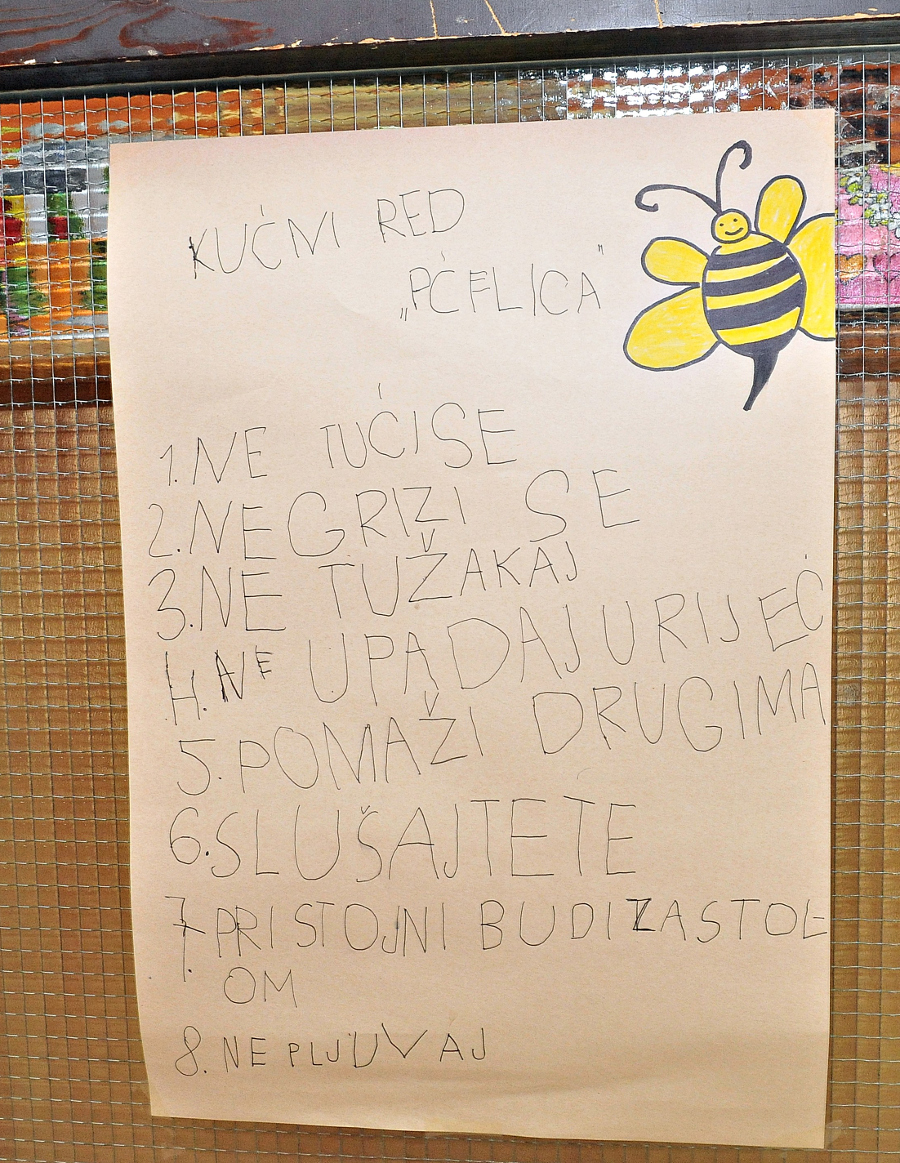 KUĆNI RED
„PĆELICA"
1. NE TUĆI SE
2. NE GRIZI SE
3. NE TUŽAKAJ
4. NE UPADAJ U RIJEĆ
5. POMAŽI DRUGIMA
6. SLUŠAJTETE
7. PRISTOJNI BUDI ZA STOL
OM
8. NE PLJUVAJ